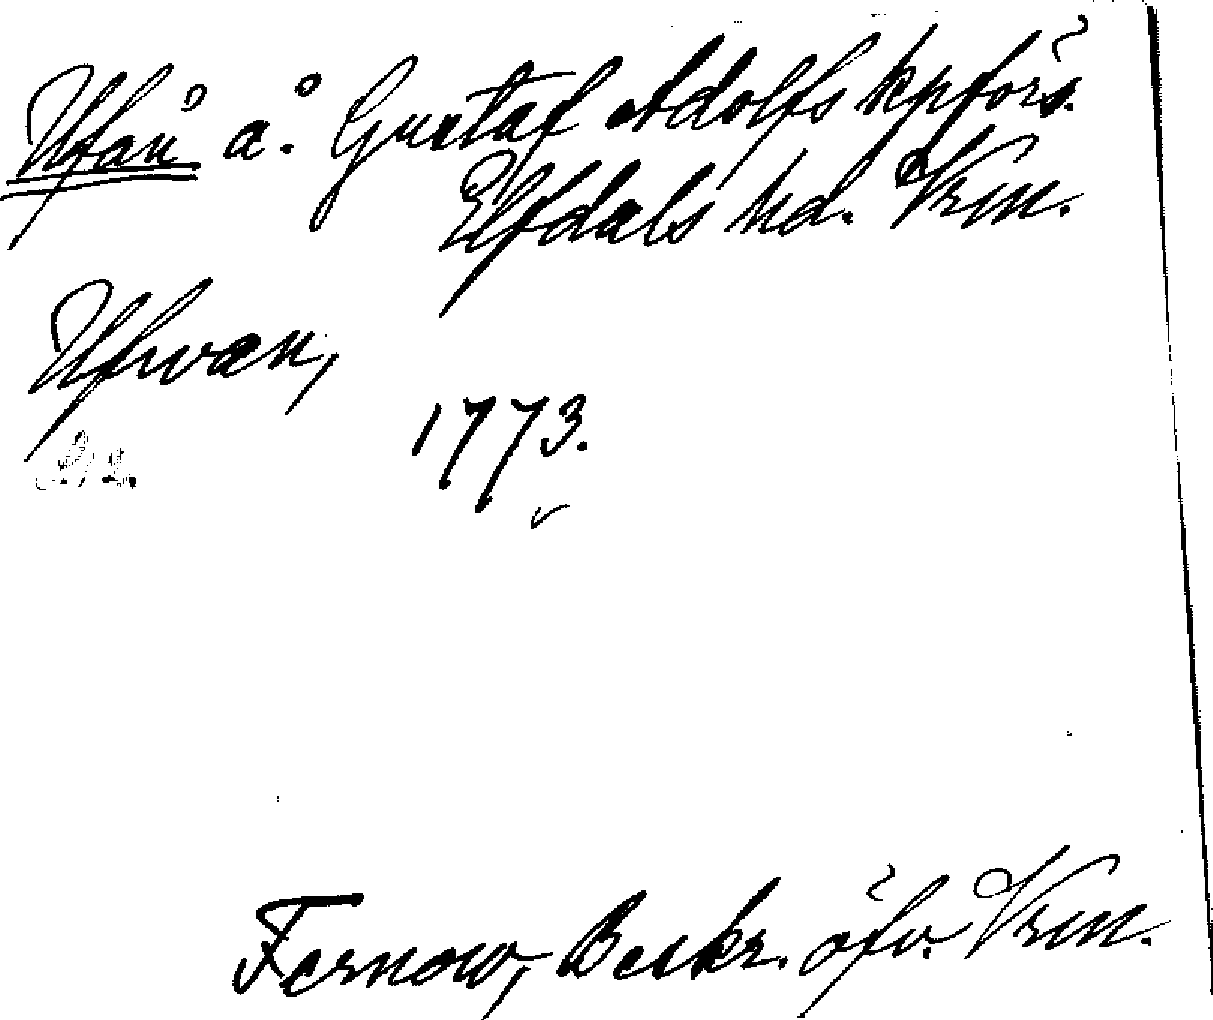 Ufån å. Gustaf Adolfs kpförs.
Elfdals hd. Vrm.
Ufwan,
1773.
Fernow, Beskr. öfv. Vrm.